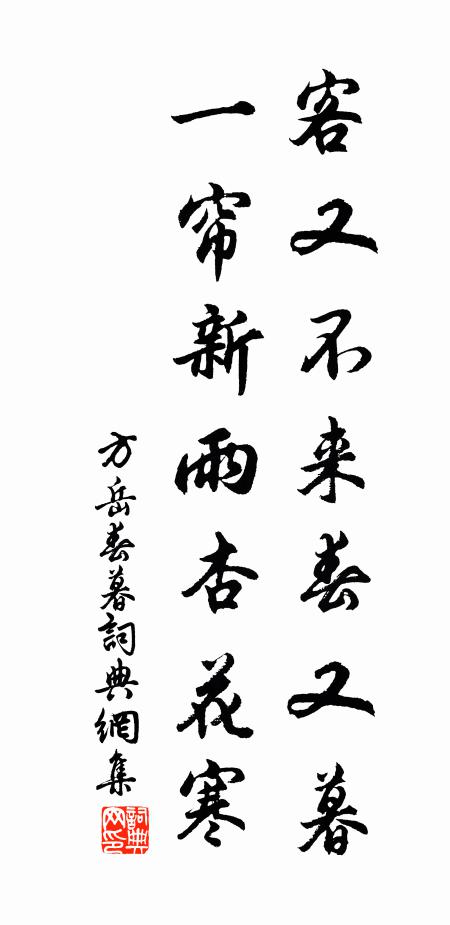 客又不来春又暮
一帘新雨杏花寒
方岳春暮詞典網集
詞典网印